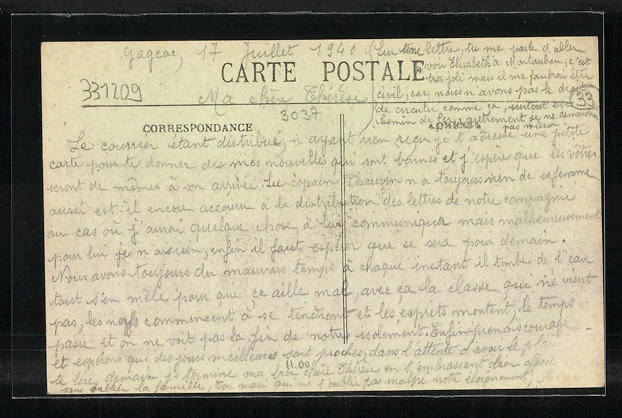 Gageac, 17 Juillet 1940.
CARTE POSTALE
331209
Ma chère Thérèse
3037
33
CORRESPONDANCE
ADRESSE
Sur lettre, tu me parle d'aller
voir Elisabeth à Montauban, c'est
très joli mais il me faudrait être
civil, car nous n'avons pas le droit
de circuler comme ça, surtout en
chemin de fer, autrement je ne demanderai
pas mieux
Le courrier étant distribué, n'ayant rien reçu je t'adresse une petite
carte pour te donner des mes nouvelles qui sont bonnes et j'espère que les vôtres
seront de mêmes à son arrivée. Le copain Chauvin n'a toujours rien de sa femme
aussi est-il encore accouru à la distribution des lettres de notre compagnie
au cas où j'aurai quelque chose à lui communiquer mais malheureusement
pour lui je n'ai rien, enfin il faut espérer que se sera pour demain.
Nous avons toujours du mauvais temps à chaque instant il tombe de l'eau
tout s'en mêle pour que ça aille mal, avec ça la classe qui ne vient
pas, les nerfs commencent à se tendrent et les esprits montent, le temps
passe et on ne voit pas la fin de notre isolement. Enfin prenons courage
et espérons que des jours meilleures sont proches, dans l'attente d'avoir le
te lire demain je termine ma très chère Thérèse en t'embrassant bien
11.00
sans oublier la famille, Ton mari qui ne t'oublie pas malgré notre éloignement